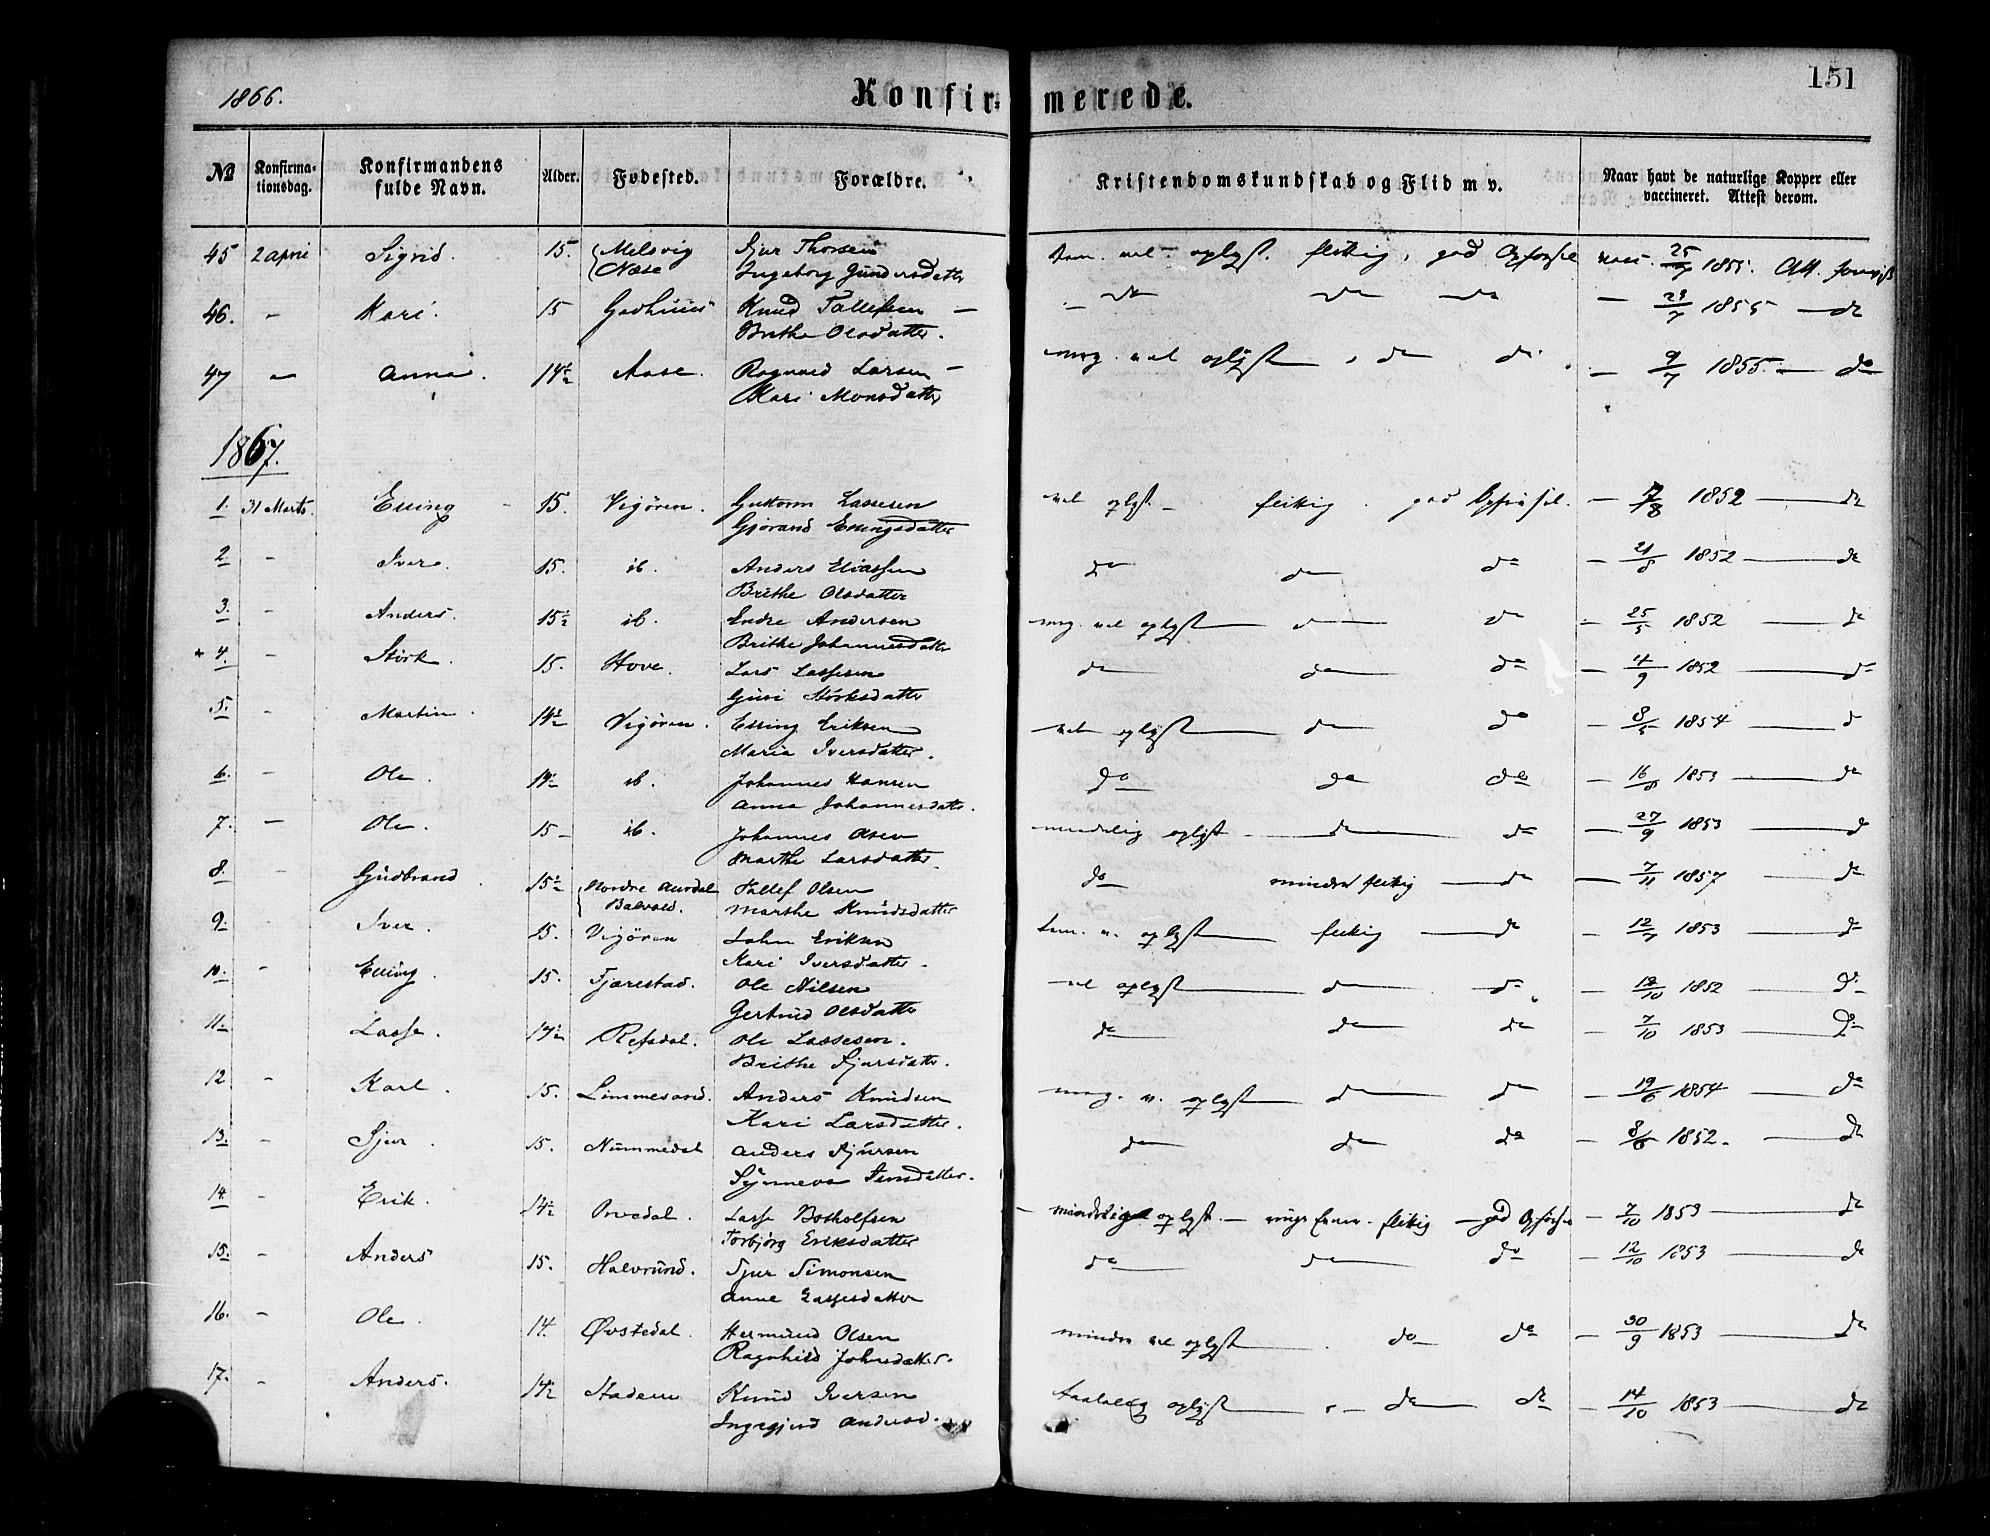 1866.
Konfir-merede.
151
No
Konfirma-tionsdag.
Konfirmandens fulde Navn.
Alder.
Fødested.
Forældre.
Kristendomskundskab og Flid m v.
Naar havt de naturlige Kopper eller vaccineret. Attest derom.
45 2 April Sigrid. 15. Melsvig Sjur Thorsen tem. vel oplyst. flittig, god Opførsel vacc. 25/7 1855. Att.
Næse Ingeborg Gundersdatter
46. - Kari. 15 Gudhuus Knud Tollefsen - do do do - 29/7 1855 - do
Brithe Olsdatter.
47 - Anna. 14½ Aase. Rognald Larsen - meg. vel oplyst, do do - 9/7 1855 - do
Kari Monsdatter
1867.
1. 31 Marts. Elling 15. Vigören. Guttorm Lassesen vel oplyst - flittig. god Opførsel. - 7/8 1852 - do
Gjörand Ellingsdatter
2. - Iver. 15. ib. Anders Eliassen do do do - 21/8 1852 - do
Brithe Olsdatter
3. - Anders. 15½ ib. Endre Andersen meg. vel oplyst do do - 25/5 1852 - do
Brithe Johannesdatter
+ 4. - Störk. 15. Hove. Lars Lassesen do do do - 4/9 1852 - do
Guri Störksdatter
5. - Martin. 14½ Vigören. Elling Eriksen vel oplyst do do - 8/5 1854 - do
Maria Iversdatter.
6. - Ole. 14½ ib. Johannes Hansen do do do - 16/8 1853 - do
Anna Johannesdatter.
7. - Ole. 15 - ib. Johannes Olsen maadelig oplyst do do - 27/9 1853 - do
Marthe Larsdatter.
8. - Gudbrand. 15½ Nordre Aurdal Tollef Olsen do mindre flittig - do - 7/11 1857 - do
Marthe Knudsdatter
9. Iver. 15. Vigören John Eriksen tem. v. oplyst flittig - do - 12/7 1853 - do
Kari Iversdatter.
10. - Elling. 15. Fjærestad. Ole Nilsen vel oplyst do do - 12/10 1852 - do
Gertrud Olsdatter
11. Lasse. 14½ Refsdal. Ole Lassesen. do do do - 7/10 1853 - do
Brithe Sjursdatter.
12 - Karl. 15. Limmesand. Anders Knudsen meg. v. oplyst do do - 19/6 1854 - do
Kari Larsdatter.
13. - Sjur. 15. Nummedal Anders Sjursen do do do - 8/6 1852. - do
Synneva Jensdatter.
14. - Erik. 14½ Ovredal. Lasse Botholfsen - maadelig oplyst. - ringe Evner. flittig - god Opførsel - 7/10 1853 - do
Torbjörg Eriksdatter
15. - Anders 15. Halvrund. Sjur Simonsen do do do - 12/10 1853 - do
Anne Lassesdatter
16. - Ole. 14. Øvstedal. Hermund Olsen mindre vel oplyst. do do - 30/9 1853 - do
Ragnhild Johnsdatter.
17. - Anders. 14½ Stadem Knud Iversen taalelig oplyst do do - 14/10 1853 - do
Ingegjerd Andersd.